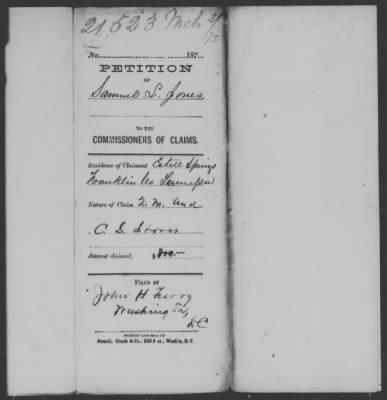 21,523 Mch 3/73
No. 187
PETITION
OF
Samuel S. Jones
TO THE
COMMISSIONERS OF CLAIMS.
Residence of Claimant Estell Springs
Franklin Co Tennessee
Nature of Claim Q. M. And
C. S. Stores
Amount claimed, $800.—
FILED BY
John H
Washington,
DC
PRINTED AND SOLD BY
Powell, Ginck & Co., 639 F st., Wash'n, D. C